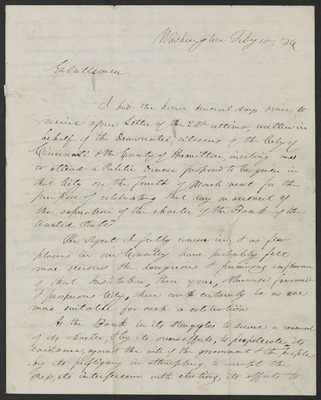 Washington Feby 10th
Gentlemen
I had the honor several days since to
receive your Letter of the 20th ultimo, written in
behalf of the Democratic citizens of the City of
Cincinnati & the County of Hamilton, inviting me
to attend a Public Dinner proposed to be given in
that City on the fourth of March next for the
purpose of celebrating that day on account of
the expiration of the charter of the Bank of the
United States
The object I fully concur in, & as few
places in our Country have probably felt
more serious the dangerous & ruinous influence
of that Institution, than yours, otherwise favored
& prosperous City, there certainly is no one
more suitable for such a celebration
As the Bank in its struggles to secure a renewal
of its charter, & by its efforts, to perpetuate its
existence, against the will of the government & the people
by its profligacy in attempting to corrupt the
press, its interference with elections, its efforts to